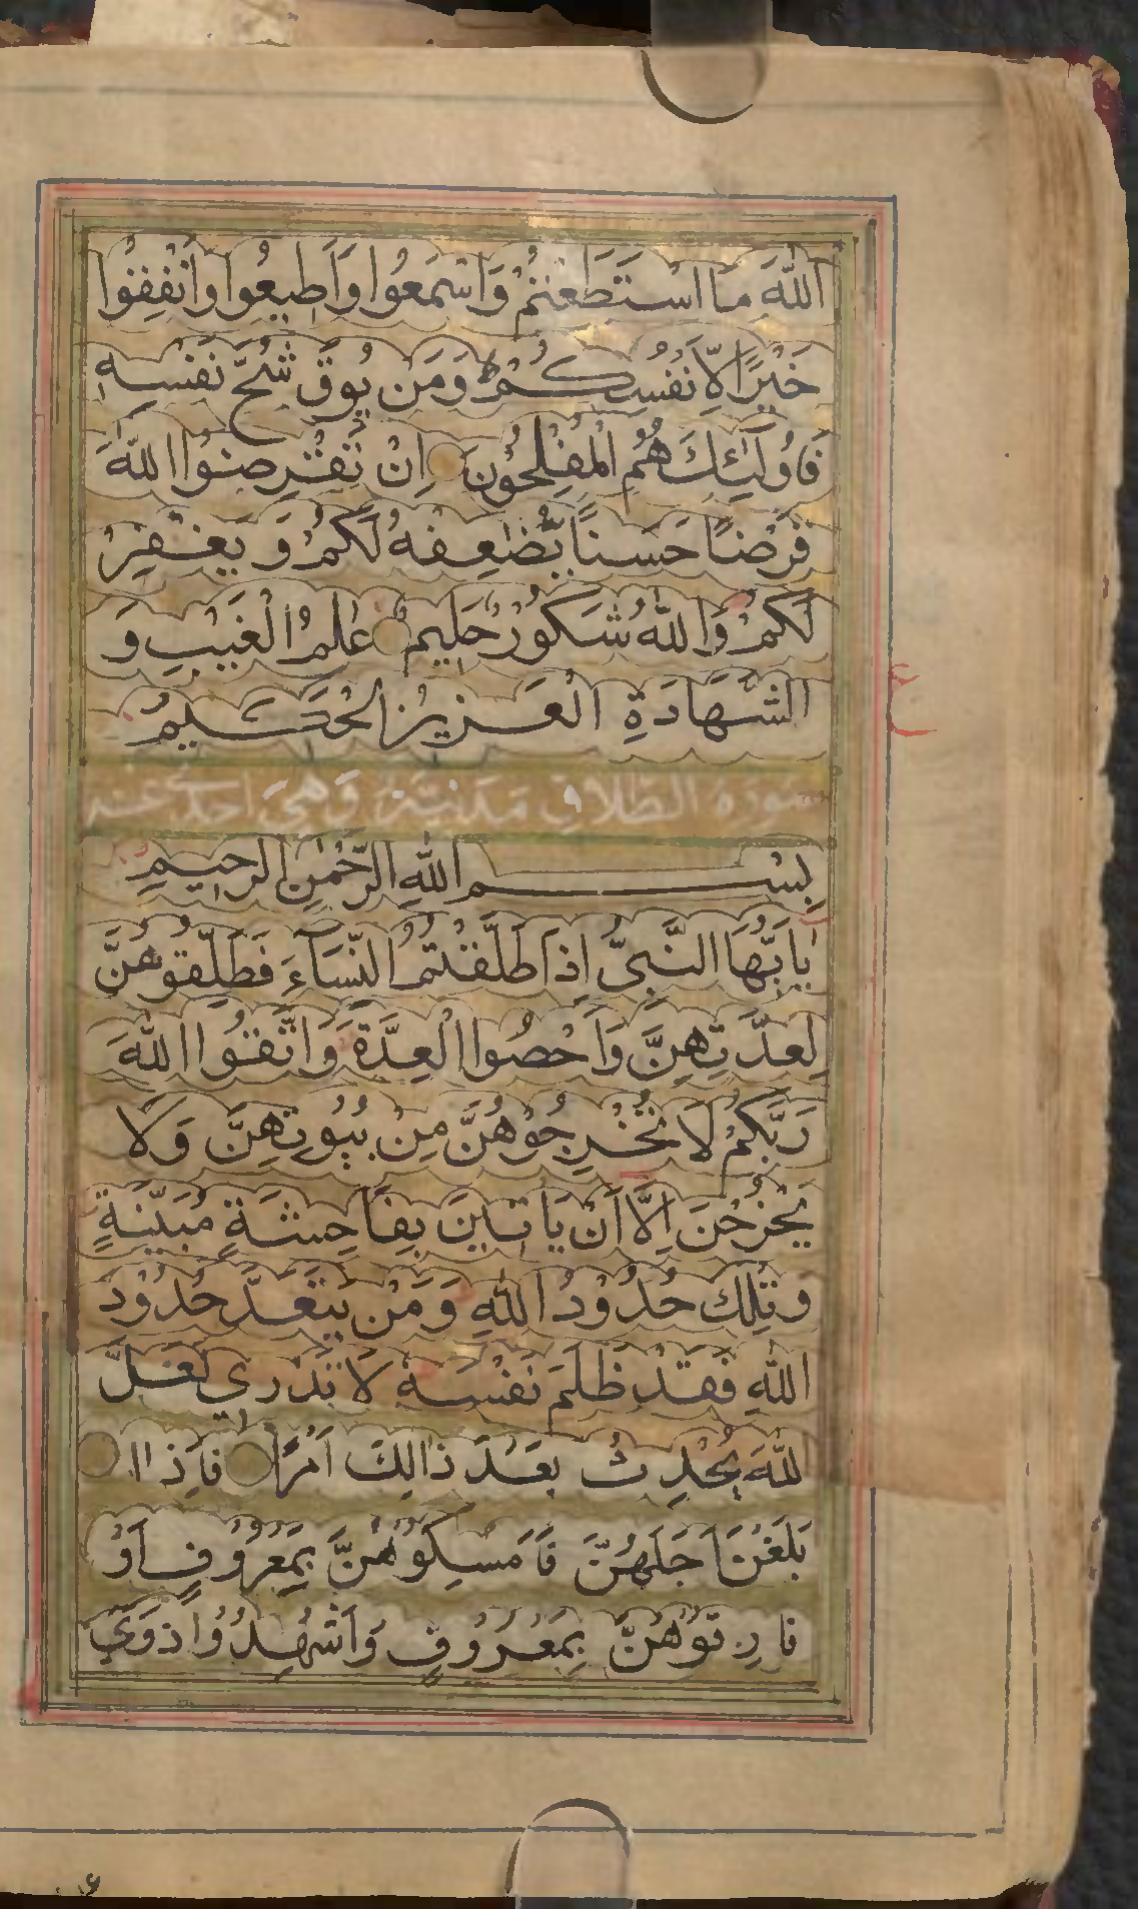 اللّٰهَ مَا اسْتَطَعْتُمْ وَاسْمَعُوا وَاَطِيعُوا وَاَنْفِقُوا
خَيْرًا لِاَّنْفُسِكُمْ ط وَمَنْ يُوقَ شُحَّ نَفْسِهِ
فَاُولٰٓئِكَ هُمُ الْمُفْلِحُونَ اِنْ تُقْرِضُوا اللّٰهَ
قَرْضًا حَسَنًا يُّضٰعِفْهُ لَكُمْ وَ يَغْفِرْ
لَكُمْ وَاللّٰهُ شَكُوْرٌ حَلِيمٌ عٰلِمُ الْغَيْبِ وَ
الشَّهَادَةِ الْعَزِيزُ الْحَكِيمُ
ع
سورة الطلاق مَدَنِيَّةٌ وَهِيَ احدى عشر
بِسْمِ اللّٰهِ الرَّحْمٰنِ الرَّحِيمِ
يٰاَيُّهَا النَّبِيُّ اِذَا طَلَّقْتُمُ النِّسَآءَ فَطَلِّقُوْهُنَّ
لِعِدَّتِهِنَّ وَاَحْصُوا الْعِدَّةَ وَاتَّقُوا اللّٰهَ
رَبَّكُمْ لَا تُخْرِجُوْهُنَّ مِنْ بُيُوتِهِنَّ وَلَا
يَخْرُجْنَ اِلَّا اَنْ يَاْتِينَ بِفَاحِشَةٍ مُبَيِّنَةٍ
وَتِلْكَ حُدُوْدُ اللّٰهِ وَمَنْ يَتَعَدَّ حُدُوْدَ
اللّٰهِ فَقَدْ ظَلَمَ نَفْسَهٗ لَا تَدْرِي لَعَلَّ
للّٰهَ يُحْدِثُ بَعْدَ ذَالِكَ اَمْرًا فَاِذَا ا
بَلَغْنَ اَجَلَهُنَّ فَاَمْسِكُوْهُنَّ بِمَعْرُوْفٍ اَوْ
فَارِقُوْهُنَّ بِمَعْرُوْفٍ وَاَشْهِدُوْا ذَوَيْ